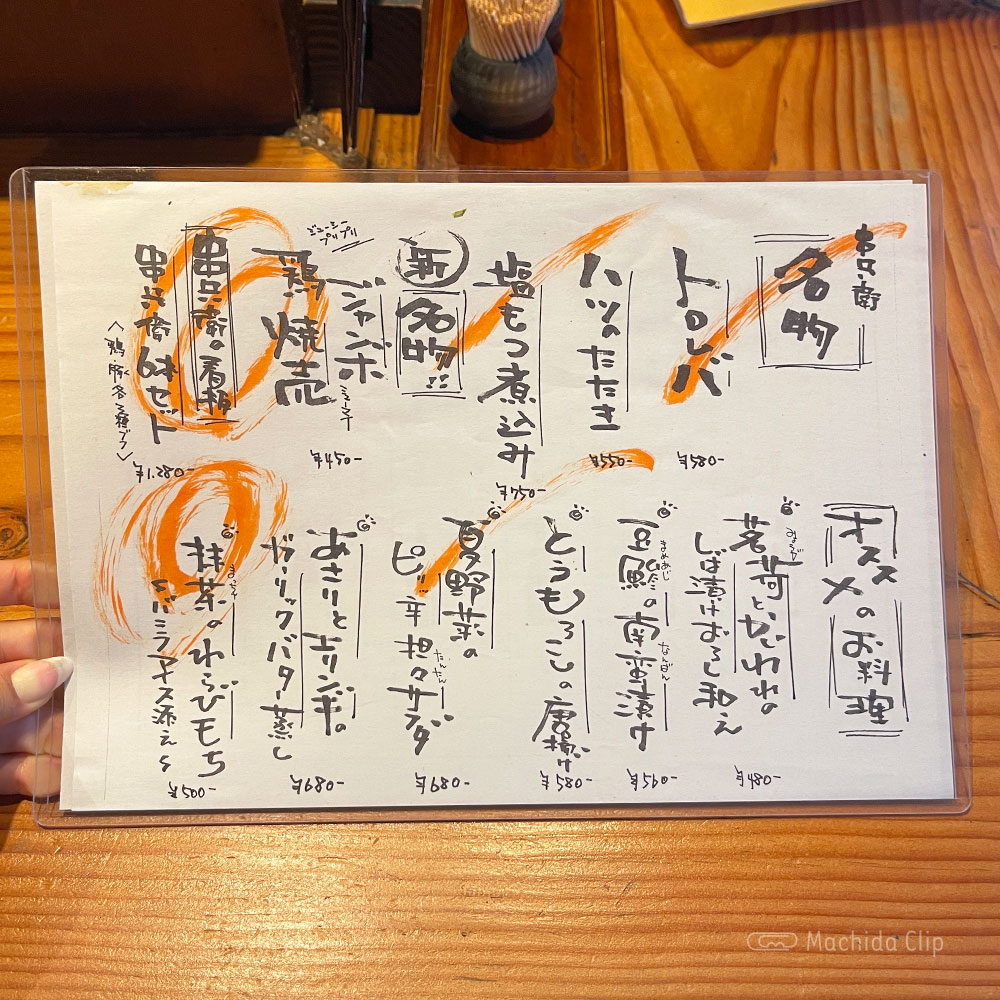 串兵衛
名物
トロレバ
¥580-
ハツのたたき
¥550-
塩もつ煮込み
¥750-
新
名物!!
ジューシー
プリプリ
ジャンボ
鶏焼売
¥450-
串兵衛の看板
串兵衛6本セット
¥1,280-
オススメのお料理
みょうが
茗荷とかいわれの
しば漬けおろし和え
¥480-
まめあじ
豆鯵の南蛮漬け
なんばん
¥560-
とうもろこしの唐揚げ
¥580-
夏野菜の
ピリ辛担々サラダ
たんたん
¥680-
あさりとエリンギの
ガーリックバター蒸し
¥680-
まっちゃ
抹茶のわらびもち
バニラアイス添え
¥500-
Machida Clip